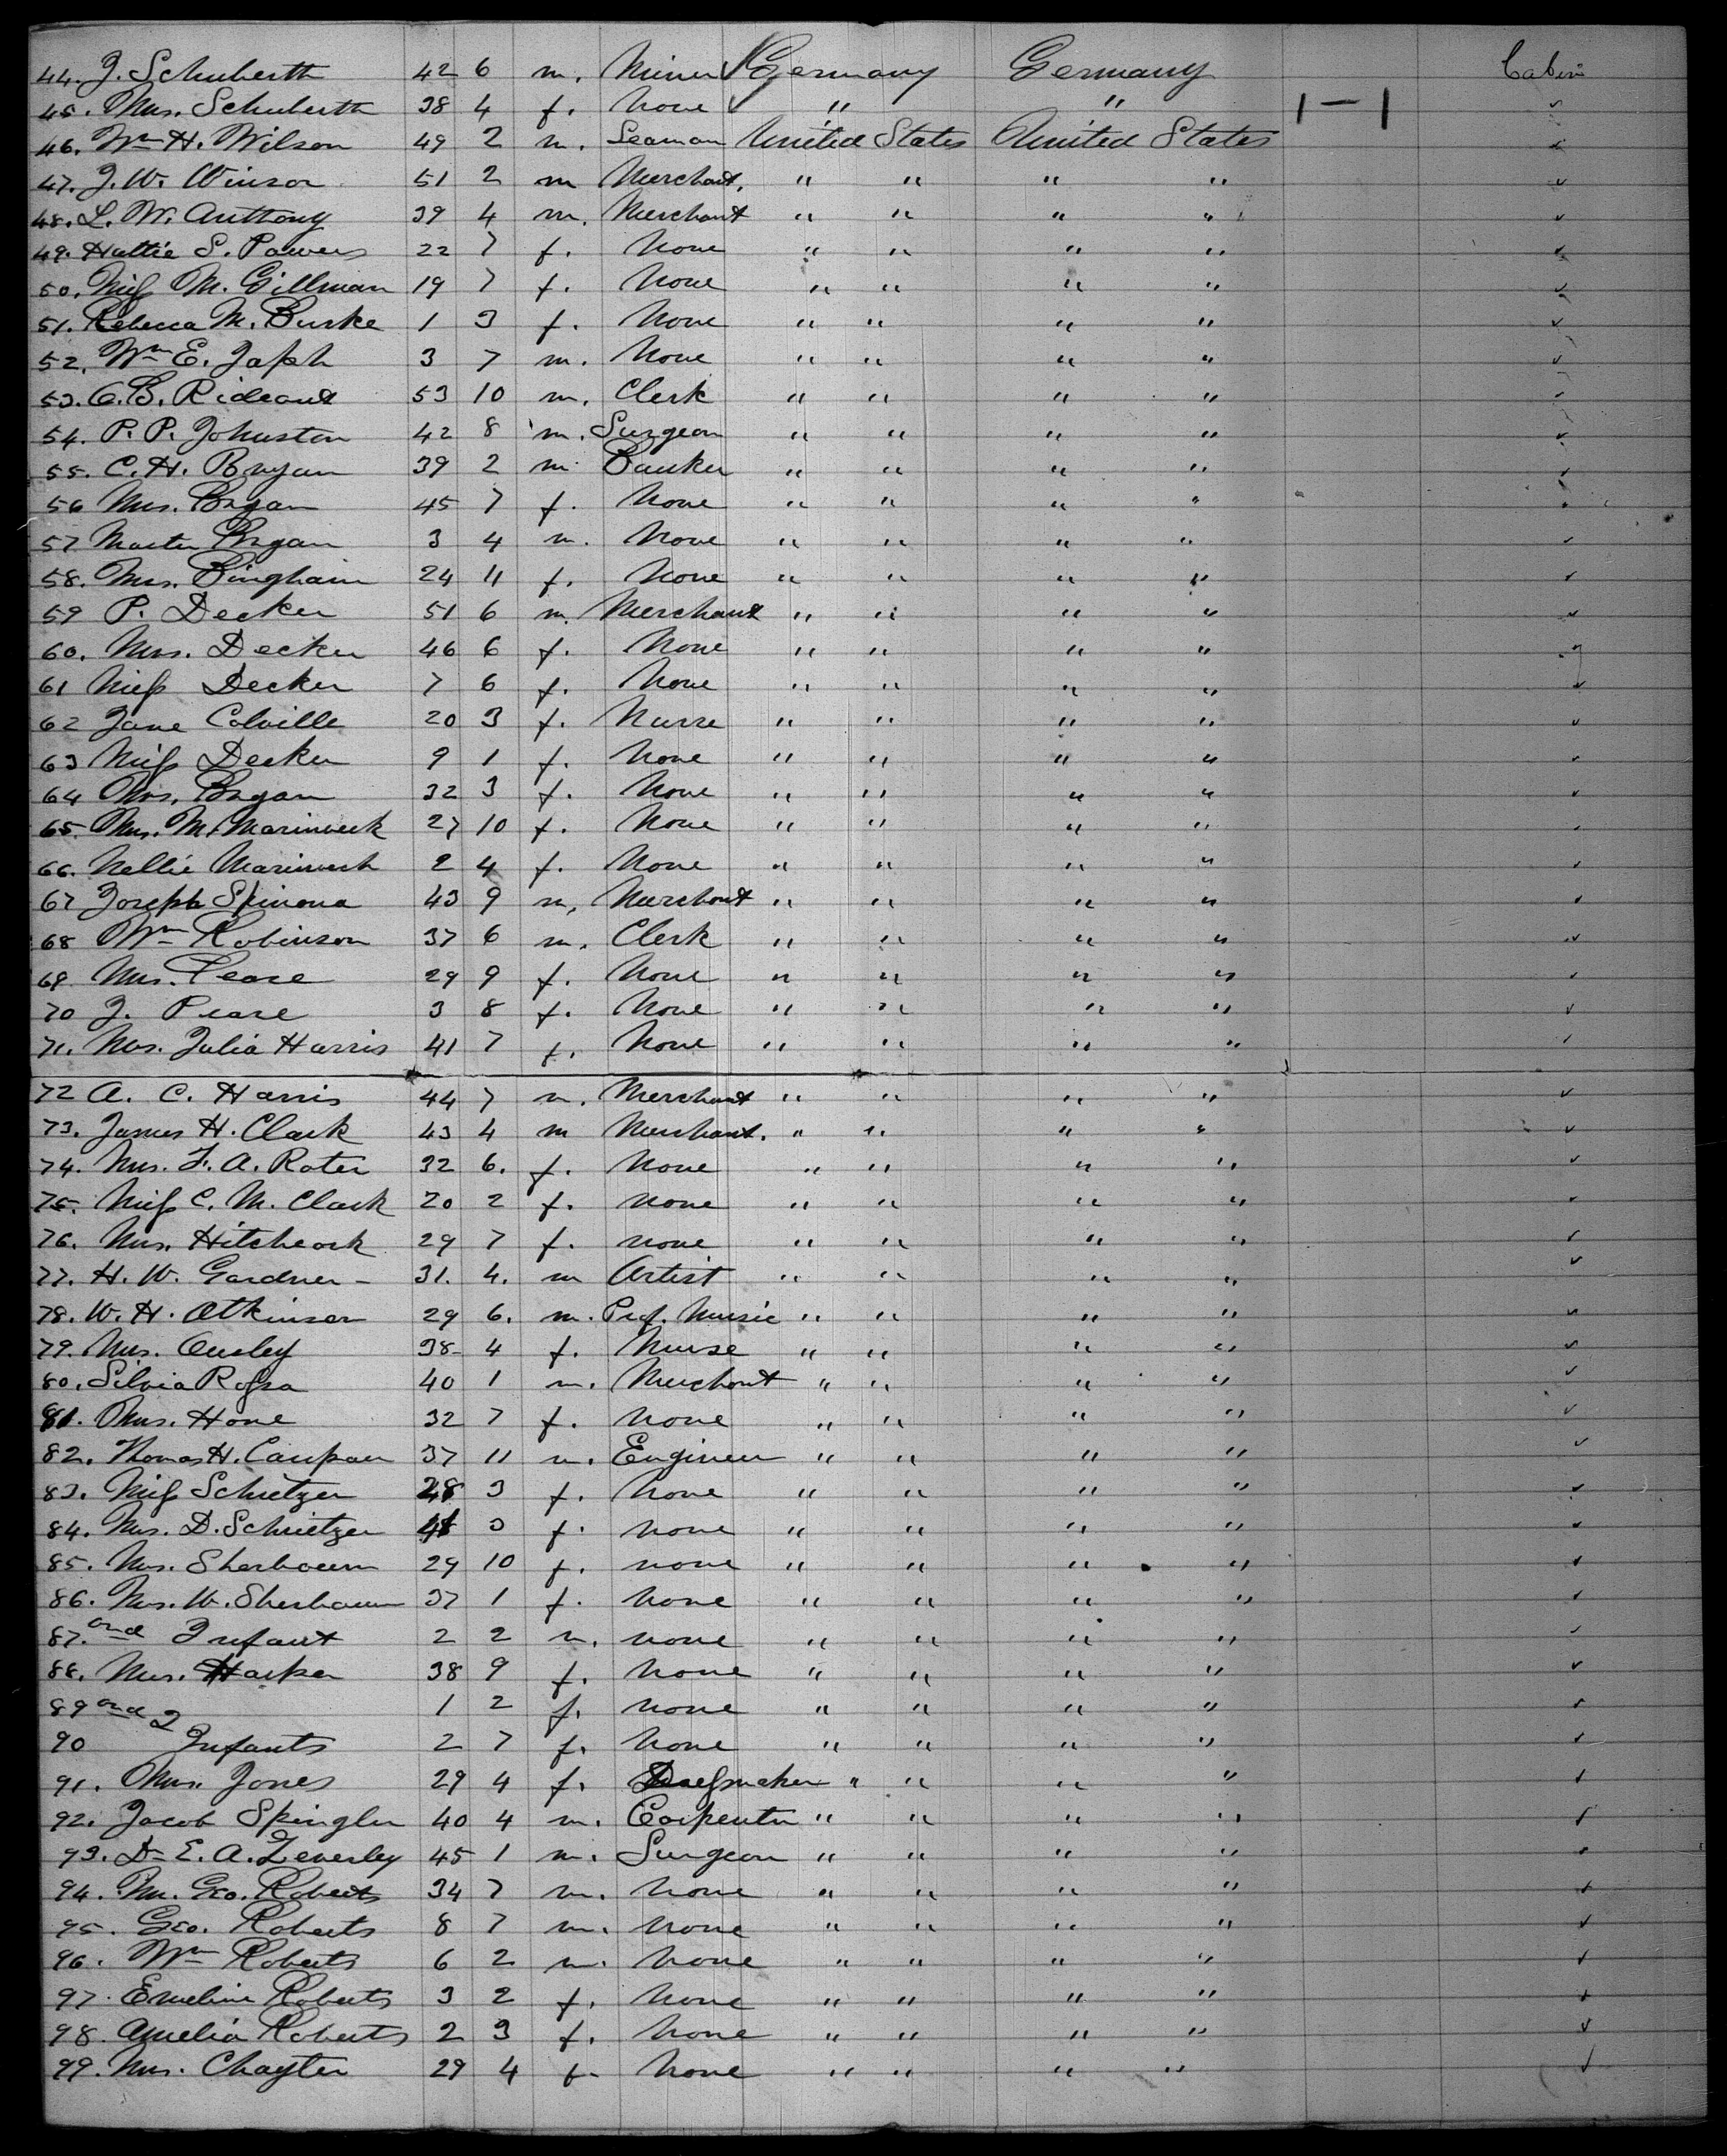 44. J. Schuberth 42 6 m. Miner Germany Germany Cabin
45. Mrs. Schuberth 38 4 f. None " " 1 — 1 ✓
46. Wm H. Wilson 49 2 m. Seaman United States United States ✓
47. J. W. Winsor 51 2 m Merchant. " " " " ✓
48. L. W. Anthony 39 4 m. Merchant " " " " ✓
49. Hattie S. Powers 22 7 f. None " " " " ✓
50. Miss M. Gillman 19 7 f. None " " " " ✓
51. Rebecca M. Burke 1 3 f. None " " " " ✓
52. Wm E. 3 7 m. None " " " " ✓
53. C. B. Rideout 53 10 m. Clerk " " " " ✓
54. P. P. Johnston 42 8 m. Surgeon " " " " ✓
55. C. H. Bryan 39 2 m. Banker " " " " ✓
56 Mrs. Bryan 45 7 f. None " " " " ✓
57 Master Bryan 3 4 m. None " " " " ✓
58. Mrs. Bingham 24 11 f. None " " " " ✓
59 P. Decker 51 6 m. Merchant " " " " ✓
60. Mrs. Decker 46 6 f. None " " " " ✓
61 Miss Decker 7 6 f. None " " " " ✓
62 Jane Colville 20 3 f. Nurse " " " " ✓
63 Miss Decker 9 1 f. None " " " " ✓
64 Mrs. Bryan 32 3 f. None " " " " ✓
65. Mrs. M. 27 10 f. None " " " " ✓
66. Nellie 2 4 f. None " " " " ✓
67 Joseph Spinona 43 9 m, Merchant " " " " ✓
68 Wm Robinson 37 6 m. Clerk " " " " ✓
69 Mrs. Pease 29 9 f. None " " " " ✓
70 J. Pease 3 8 f. None " " " " ✓
71. Mrs. Julia Harris 41 7 f. None " " " " ✓
72 A. C. Harris 44 7 m. Merchant " " " " ✓
73. James H. Clark 43 4 m Merchant. " " " " ✓
74. Mrs. F. A. Roter 32 6. f. None " " " " ✓
75. Miss C. M. Clark 20 2 f. none " " " " ✓
76. Mrs. Hitchcock 29 7 f. none " " " " ✓
77. H. W. Gardner - 31. 4. m Artist " " " " ✓
78. W. H. Atkinson 29 6. m. Prof. Music " " " " ✓
79. Mrs. Ousley 38 4 f. Nurse " " " " ✓
80. Silvia 40 1 m. Merchant " " " " ✓
81. Mrs. Hone 32 7 f. none " " " " ✓
82. Thomas H. Caupau 37 11 m. Engineer " " " " ✓
83. Miss Schietzer 28 3 f. None " " " " ✓
84. Mrs. D. Schietzer 3 f. none " " " " ✓
85. Mrs. Sherbourn 29 10 f. none " " " " ✓
86. Mrs. W. Sherbourn 37 1 f. none " " " " ✓
87. and Infant 2 2 m. none " " " " ✓
88. Mrs. Harker 38 9 f. none " " " " ✓
89 and 2 1 2 f. none " " " " ✓
90 Infants 2 7 f. None " " " " ✓
91. Mrs. Jones 29 4 f. Dressmaker " " " " ✓
92. Jacob Spingler 40 4 m. Carpenter " " " " ✓
93. Dr E. A. Zeverley 45 1 m. Surgeon " " " " ✓
94. Geo. Roberts 34 7 m. none " " " " ✓
95. Geo. Roberts 8 7 m. none " " " " ✓
96. Wm Roberts 6 2 m. none " " " " ✓
97. Emeline Roberts 3 2 f. None " " " " ✓
98. Amelia Roberts 2 3 f. None " " " " ✓
99. Mrs. Chayter 29 4 f. None " " " " ✓